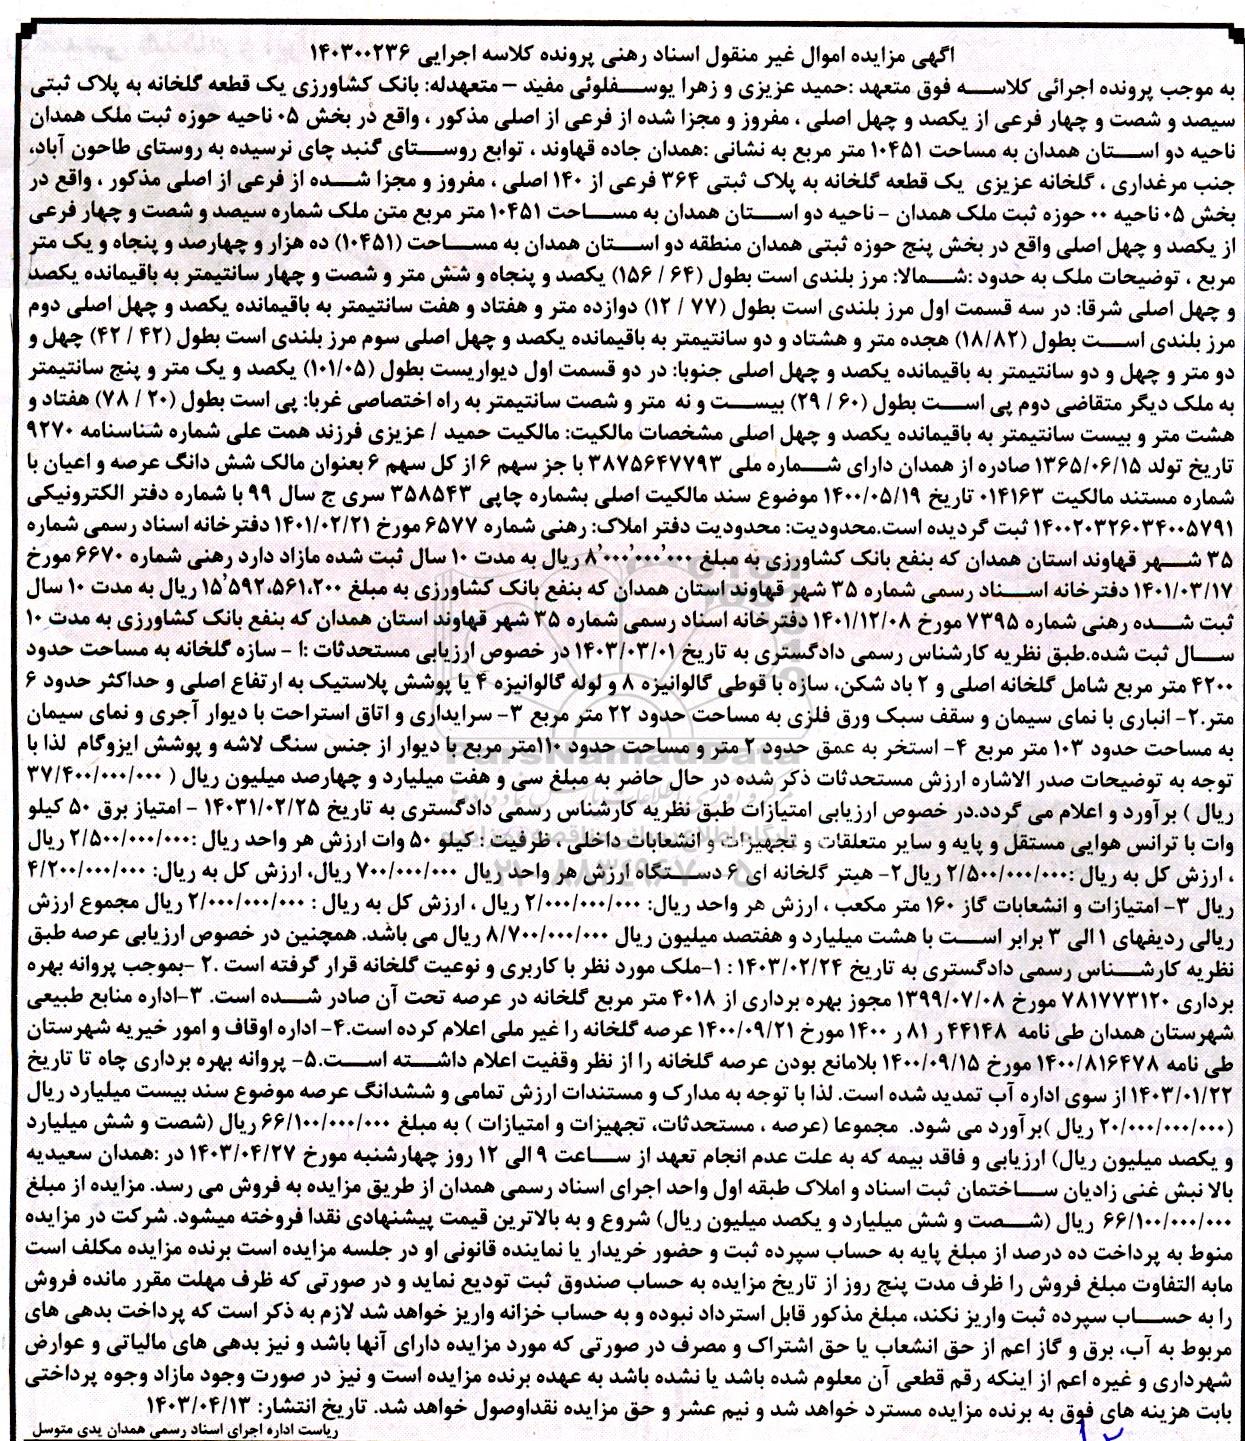 آگهی مزایده اموال غیر منقول اسناد رهنی پرونده کلاسه اجرایی ۱۴۰۳۰۰۲۳۶
به موجب پرونده اجرائی کلاسه فوق متعهد :حمید عزیزی و زهرا یوسفلوئی مفید – متعهدله: بانک کشاورزی یک قطعه گلخانه به پلاک ثبتی
سیصد و شصت و چهار فرعی از یکصد و چهل اصلی ، مفروز و مجزا شده از فرعی از اصلی مذکور ، واقع در بخش ۰۵ ناحیه حوزه ثبت ملک همدان
ناحیه دو استان همدان به مساحت ۱۰۴۵۱ متر مربع به نشانی :همدان جاده قهاوند ، توابع روستای گنبد چای نرسیده به روستای طاحون آباد،
جنب مرغداری ، گلخانه عزیزی یک قطعه گلخانه به پلاک ثبتی ۳۶۴ فرعی از ۱۴۰ اصلی ، مفروز و مجزا شده از فرعی از اصلی مذکور ، واقع در
بخش ۰۵ ناحیه ۰۰ حوزه ثبت ملک همدان - ناحیه دو استان همدان به مساحت ۱۰۴۵۱ متر مربع متن ملک شماره سیصد و شصت و چهار فرعی
از یکصد و چهل اصلی واقع در بخش پنج حوزه ثبتی همدان منطقه دو استان همدان به مساحت (۱۰۴۵۱) ده هزار و چهارصد و پنجاه و یک متر
مربع ، توضیحات ملک به حدود :شمالا: مرز بلندی است بطول (۶۴ / ۱۵۶) یکصد و پنجاه و شش متر و شصت و چهار سانتیمتر به باقیمانده یکصد
و چهل اصلی شرقا: در سه قسمت اول مرز بلندی است بطول (۷۷ / ۱۲) دوازده متر و هفتاد و هفت سانتیمتر به باقیمانده یکصد و چهل اصلی دوم
مرز بلندی است بطول (۱۸/۸۲) هجده متر و هشتاد و دو سانتیمتر به باقیمانده یکصد و چهل اصلی سوم مرز بلندی است بطول (۴۲ / ۴۲) چهل و
دو متر و چهل و دو سانتیمتر به باقیمانده یکصد و چهل اصلی جنوبا: در دو قسمت اول دیواریست بطول (۱۰۱/۰۵) یکصد و یک متر و پنج سانتیمتر
به ملک دیگر متقاضی دوم پی است بطول (۶۰ / ۲۹) بیست و نه متر و شصت سانتیمتر به راه اختصاصی غربا: پی است بطول (۲۰ / ۷۸) هفتاد و
هشت متر و بیست سانتیمتر به باقیمانده یکصد و چهل اصلی مشخصات مالکیت: مالکیت حمید / عزیزی فرزند همت علی شماره شناسنامه ۹۲۷۰
تاریخ تولد ۱۳۶۵/۰۶/۱۵ صادره از همدان دارای شماره ملی ۳۸۷۵۶۴۷۷۹۳ با جز سهم ۶ از کل سهم ۶ بعنوان مالک شش دانگ عرصه و اعیان با
شماره مستند مالکیت ۰۱۴۱۶۳ تاریخ ۱۴۰۰/۰۵/۱۹ موضوع سند مالکیت اصلی بشماره چاپی ۳۵۸۵۴۳ سری ج سال ۹۹ با شماره دفتر الکترونیکی
۱۴۰۰۲۰۳۲۶۰۳۴۰۰۵۷۹۱ ثبت گردیده است.محدودیت: محدودیت دفتر املاک: رهنی شماره ۶۵۷۷ مورخ ۱۴۰۱/۰۲/۲۱ دفترخانه اسناد رسمی شماره
۳۵ شهر قهاوند استان همدان که بنفع بانک کشاورزی به مبلغ ۸٬۰۰۰٬۰۰۰٬۰۰۰ ریال به مدت ۱۰ سال ثبت شده مازاد دارد رهنی شماره ۶۶۷۰ مورخ
۱۴۰۱/۰۳/۱۷ دفترخانه اسناد رسمی شماره ۳۵ شهر قهاوند استان همدان که بنفع بانک کشاورزی به مبلغ ۱۵٬۵۹۲،۵۶۱،۲۰۰ ریال به مدت ۱۰ سال
ثبت شده رهنی شماره ۷۳۹۵ مورخ ۱۴۰۱/۱۲/۰۸ دفترخانه اسناد رسمی شماره ۳۵ شهر قهاوند استان همدان که بنفع بانک کشاورزی به مدت ۱۰
سال ثبت شده.طبق نظریه کارشناس رسمی دادگستری به تاریخ ۱۴۰۳/۰۳/۰۱ در خصوص ارزیابی مستحدثات :۱ - سازه گلخانه به مساحت حدود
۴۲۰۰ متر مربع شامل گلخانه اصلی و ۲ باد شکن، سازه با قوطی گالوانیزه ۸ و لوله گالوانیزه ۴ با پوشش پلاستیک به ارتفاع اصلی و حداکثر حدود ۶
متر.۲- انباری با نمای سیمان و سقف سبک ورق فلزی به مساحت حدود ۲۲ متر مربع ۳- سرایداری و اتاق استراحت با دیوار آجری و نمای سیمان
به مساحت حدود ۱۰۳ متر مربع ۴- استخر به عمق حدود ۲ متر و مساحت حدود ۱۱۰متر مربع با دیوار از جنس سنگ لاشه و پوشش ایزوگام لذا با
توجه به توضیحات صدر الاشاره ارزش مستحدثات ذکر شده در حال حاضر به مبلغ سی و هفت میلیارد و چهارصد میلیون ریال ( ۳۷/۴۰۰/۰۰۰/۰۰۰
ریال ) برآورد و اعلام می گردد.در خصوص ارزیابی امتیازات طبق نظریه کارشناس رسمی دادگستری به تاریخ ۱۴۰۳۱/۰۲/۲۵ - امتیاز برق ۵۰ کیلو
وات با ترانس هوایی مستقل و پایه و سایر متعلقات و تجهیزات و انشعابات داخلی ، ظرفیت : کیلو ۵۰ وات ارزش هر واحد ریال :۲/۵۰۰/۰۰۰/۰۰۰ ریال
، ارزش کل به ریال :۲/۵۰۰/۰۰۰/۰۰۰ ریال۲- هیتر گلخانه ای ۶ دستگاه ارزش هر واحد ریال ۷۰۰/۰۰۰/۰۰۰ ریال، ارزش کل به ریال: ۴/۲۰۰/۰۰۰/۰۰۰
ریال ۳- امتیازات و انشعابات گاز ۱۶۰ متر مکعب ، ارزش هر واحد ریال: ۲/۰۰۰/۰۰۰/۰۰۰ ریال ، ارزش کل به ریال : ۲/۰۰۰/۰۰۰/۰۰۰ ریال مجموع ارزش
ریالی ردیفهای ۱ الی ۳ برابر است با هشت میلیارد و هفتصد میلیون ریال ۸/۷۰۰/۰۰۰/۰۰۰ ریال می باشد. همچنین در خصوص ارزیابی عرصه طبق
نظریه کارشناس رسمی دادگستری به تاریخ ۱۴۰۳/۰۲/۲۴ : ۱-ملک مورد نظر با کاربری و نوعیت گلخانه قرار گرفته است .۲ -بموجب پروانه بهره
برداری ۷۸۱۷۷۳۱۲۰ مورخ ۱۳۹۹/۰۷/۰۸ مجوز بهره برداری از ۴۰۱۸ متر مربع گلخانه در عرصه تحت آن صادر شده است. ۳-اداره منابع طبیعی
شهرستان همدان طی نامه ۴۴۱۴۸ ر ۸۱ ر ۱۴۰۰ مورخ ۱۴۰۰/۰۹/۲۱ عرصه گلخانه را غیر ملی اعلام کرده است.۴- اداره اوقاف و امور خیریه شهرستان
طی نامه ۱۴۰۰/۸۱۶۴۷۸ مورخ ۱۴۰۰/۰۹/۱۵ بلامانع بودن عرصه گلخانه را از نظر وقفیت اعلام داشته است.۵- پروانه بهره برداری چاه تا تاریخ
۱۴۰۳/۰۱/۲۲ از سوی اداره آب تمدید شده است. لذا با توجه به مدارک و مستندات ارزش تمامی و ششدانگ عرصه موضوع سند بیست میلیارد ریال
(۲۰/۰۰۰/۰۰۰/۰۰۰ ریال )برآورد می شود. مجموعا (عرصه ، مستحدثات، تجهیزات و امتیازات ) به مبلغ ۶۶/۱۰۰/۰۰۰/۰۰۰ ریال (شصت و شش میلیارد
و یکصد میلیون ریال) ارزیابی و فاقد بیمه که به علت عدم انجام تعهد از ساعت ۹ الی ۱۲ روز چهارشنبه مورخ ۱۴۰۳/۰۴/۲۷ در :همدان سعیدیه
بالا نبش غنی زادیان ساختمان ثبت اسناد و املاک طبقه اول واحد اجرای اسناد رسمی همدان از طریق مزایده به فروش می رسد. مزایده از مبلغ
۶۶/۱۰۰/۰۰۰/۰۰۰ ریال (شصت و شش میلیارد و یکصد میلیون ریال) شروع و به بالاترین قیمت پیشنهادی نقدا فروخته میشود. شرکت در مزایده
منوط به پرداخت ده درصد از مبلغ پایه به حساب سپرده ثبت و حضور خریدار یا نماینده قانونی او در جلسه مزایده است برنده مزایده مکلف است
مابه التفاوت مبلغ فروش را ظرف مدت پنج روز از تاریخ مزایده به حساب صندوق ثبت تودیع نماید و در صورتی که ظرف مهلت مقرر مانده فروش
را به حساب سپرده ثبت واریز نکند، مبلغ مذکور قابل استرداد نبوده و به حساب خزانه واریز خواهد شد لازم به ذکر است که پرداخت بدهی های
مربوط به آب، برق و گاز اعم از حق انشعاب یا حق اشتراک و مصرف در صورتی که مورد مزایده دارای آنها باشد و نیز بدهی های مالیاتی و عوارض
شهرداری و غیره اعم از اینکه رقم قطعی آن معلوم شده باشد یا نشده باشد به عهده برنده مزایده است و نیز در صورت وجود مازاد وجوه پرداختی
بابت هزینه های فوق به برنده مزایده مسترد خواهد شد و نیم عشر و حق مزایده نقداوصول خواهد شد. تاریخ انتشار: ۱۴۰۳/۰۴/۱۳
ریاست اداره اجرای اسناد رسمی همدان یدی متوسل
ParsNamadData